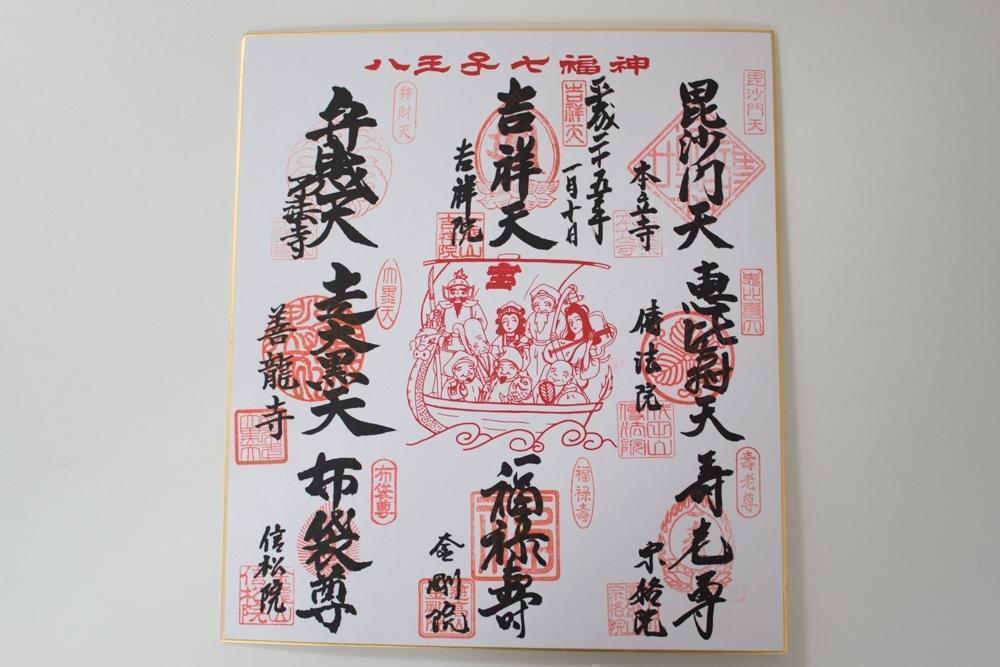 八王子七福神
毘沙門天
毘沙門天
本立寺
平成二十五年
一月十日
吉祥天
吉祥天
吉祥院
弁財天
弁財天
了法寺
恵比寿天
傳法院
宝
大黒天
走大黒天
善龍寺
壽老尊
寿老尊
宗格院
福禄壽
福禄壽
金剛院
布袋尊
布袋尊
信松院